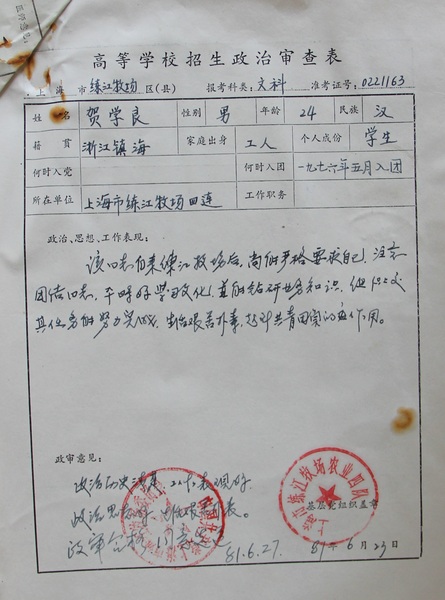 高等学校招生政治审查表
上海市练江牧场区(县) 报考科类：文科 准考证号：0221163
姓名 贺学良 性别 男 年龄 24 民族 汉
籍贯 浙江镇海 家庭出身 工人 个人成份 学生
何时入党 何时入团 一九七六年五月入团
所在单位 上海市练江牧场四连 工作职务
政治、思想、工作表现：
该同志自来练江牧场后，尚能严格要求自己，注意
团结同志，平时好学习文化，真能钻研业务知识，
其任务能努力完成，生活艰苦朴素，起到共青团员的作用。
政审意见：
政治历史清楚，工作表现好
政治思想好，生活艰苦朴素。
政审合格，同意
81.6.27.
上海市练江牧场农业四队
基层党组织盖章
81年6月23日